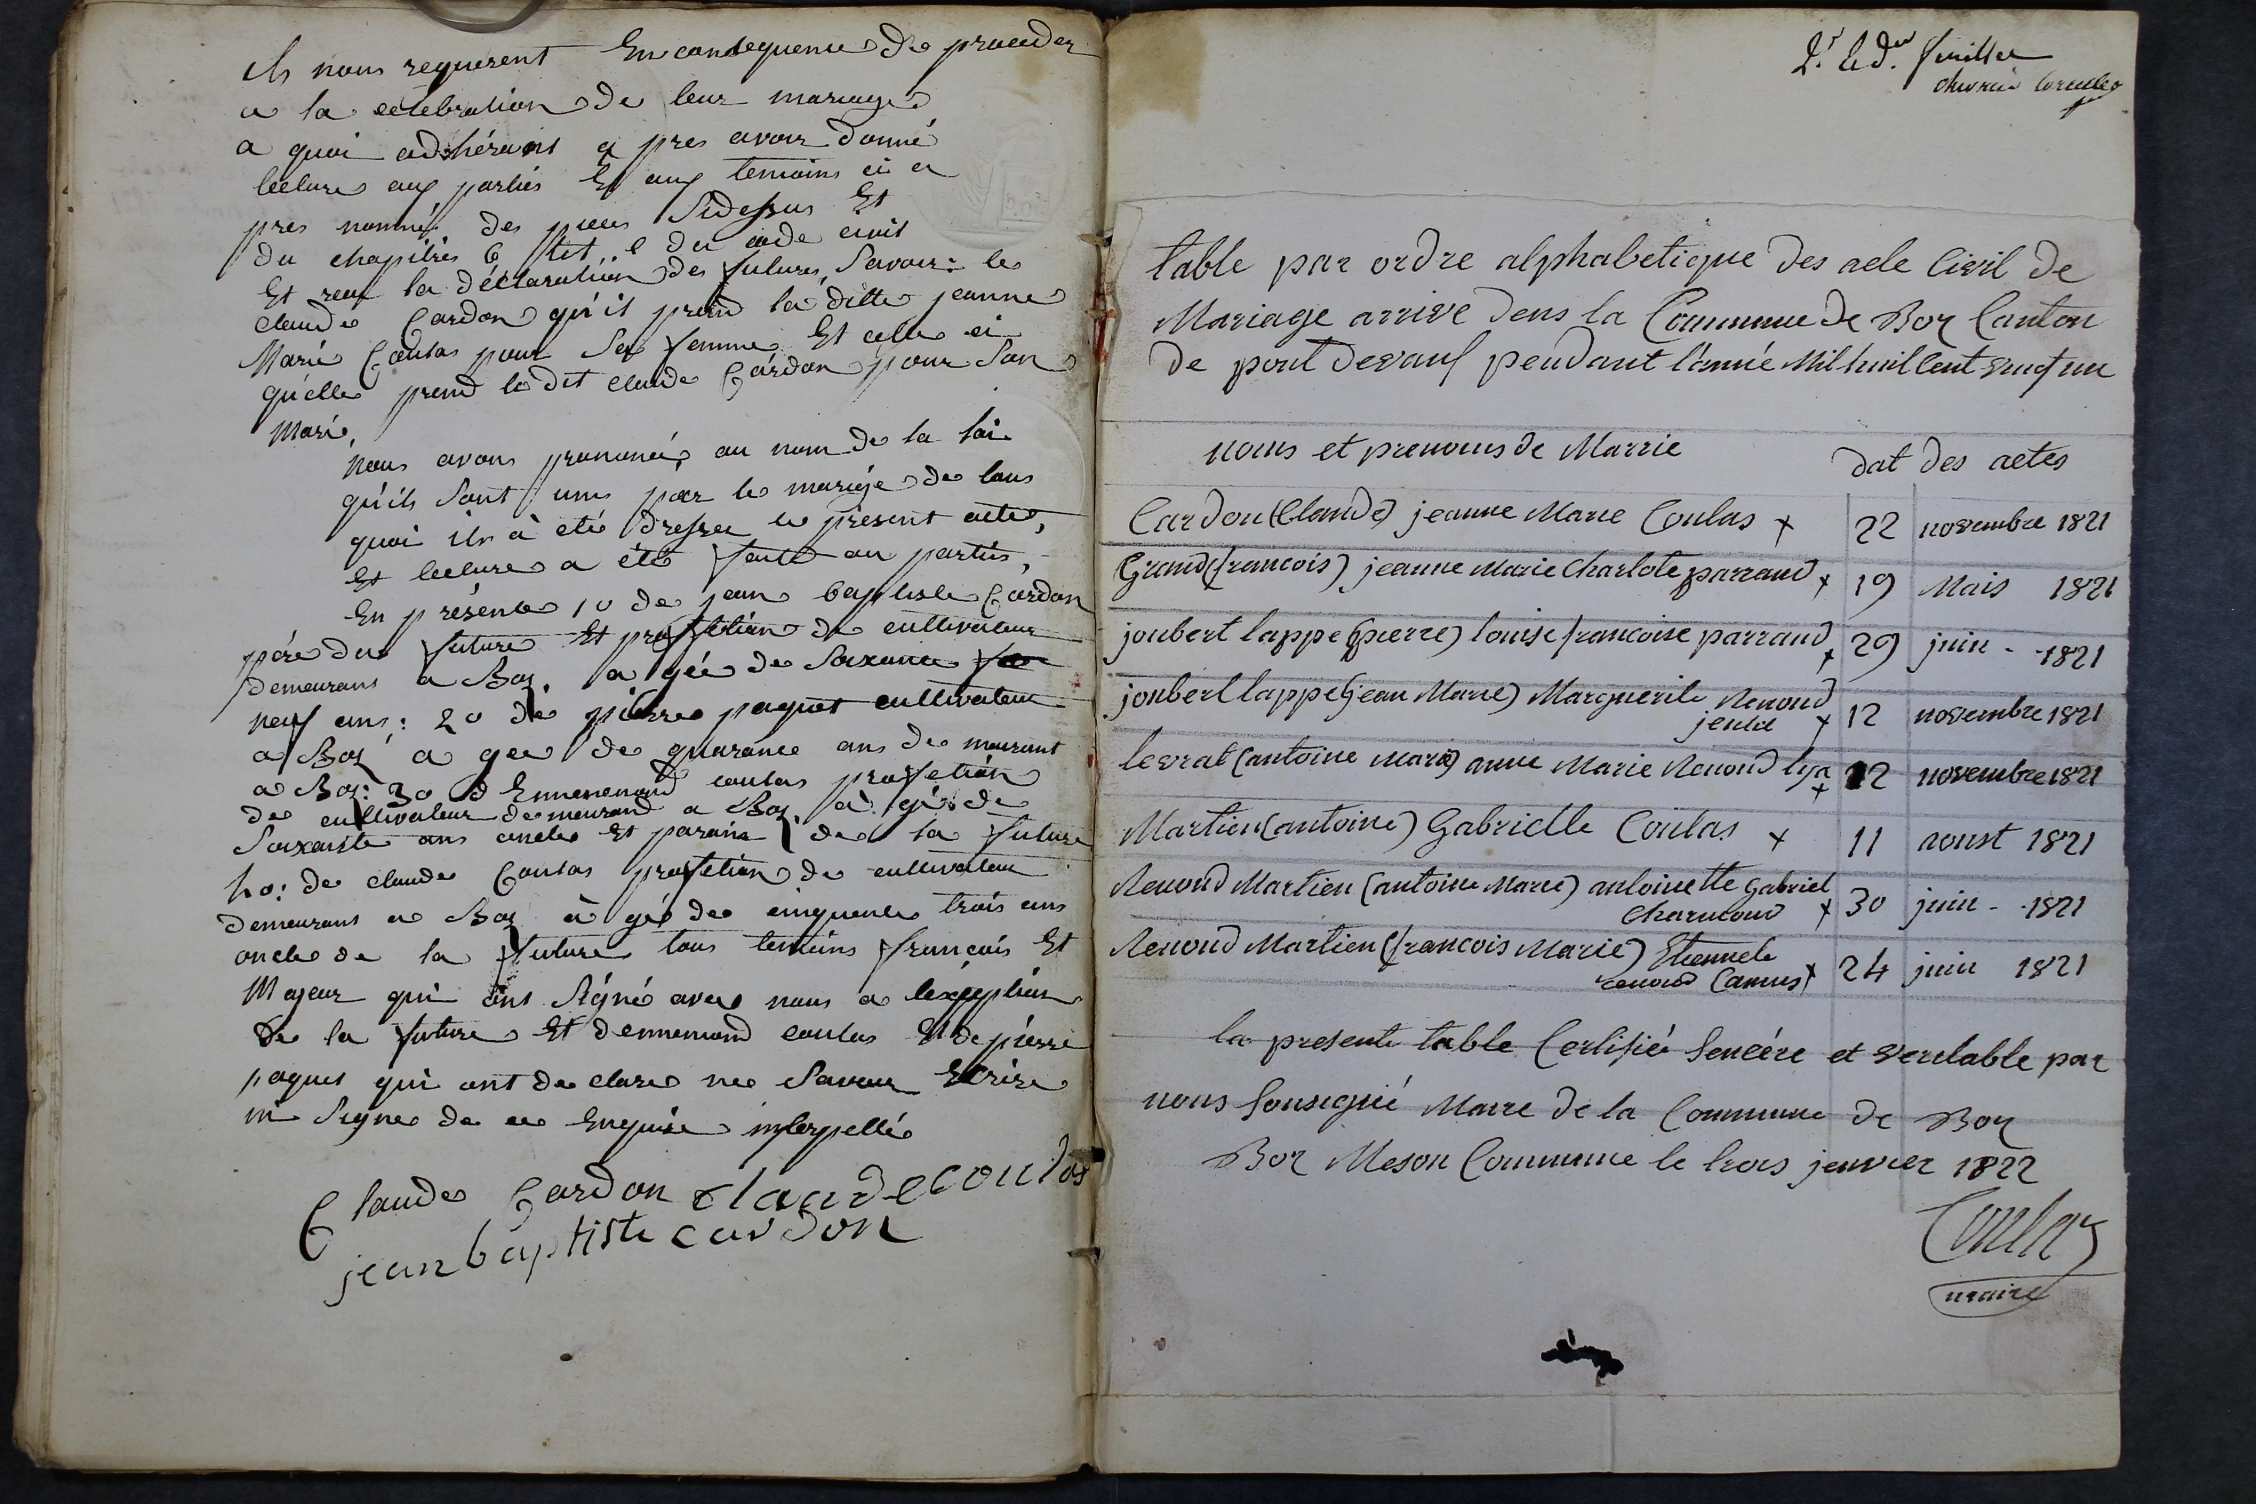 ils nous requerent En consequence de proceder
a la celebration de leur mariage
a quoi adhérant a pres avoir donné
lecture aux parties Et aux temoins ci a
pres nommé des pieces Sidessus Et
du chapitre 6 tit e du code civil
Et reçu la déclaration des futures, Savoir: le
claude Cardon qu'il prend la ditte jeanne
Marie Coulas pour Sa femme Et celle ci
qu'elle prend le dit claude Cardon pour Son
Mari,
Nous avons prononcé, au nom de la loi
qu'ils sont unis par le mariage de tous
quoi ils à été dresser le présent acte,
Et lecture a été faite au parties,
En présente 1o de jean baptiste Cardon
père du future Et profetion de cultivateur
demeurant a Boz, a gée de Soixante
neuf ans: 2o de pierre paquet cultivateur
a Boz a gee de quarante ans de meurant
a Boz: 3o d Ennemond coulas profetion
de cultivateur demeurand a Boz, à gé de
Soixante ans oncle Et parain de la future
ho: de claude Coulas profetion de cultivateur
demeurant a Boz à gé de cinquente trois ans
oncle de la future tous temoins français Et
Majeur qui ont Signé avec nous a lexception
de la future Et dennemond coulas Et de pierre
paquet qui ont de clare ne Savoir Ecrire
ni Signe de ce Enquise interpellé
Claude Cardon claude coulas
jean baptiste cardon
2.e & d.er feuillet
table par ordre alphabetique des acte Civil de
Mariage arrive dens la Commune de Boz Canton
de pont devaux pendant l'année Mil huit Cent vingt un
noms et prenoms de Marrie dat des actes
Cardon (Claude) jeanne Marie Coulas x 22 novembre 1821
Grand (francois) jeanne Marie Charlote parraud x 19 Mais 1821
joubert lappe (pierre) louise francoise parraud x 29 juin - 1821
joubert lappe (jean Marie) Marguerite Renoud
jenlet x 12 novembre 1821
levrat (antoine Marie) anne Marie Renoud lya x 12 novembre 1821
Martien (antoine) Gabrielle Coulas x 11 aoust 1821
Renoud Martien (antoine Marie) antoinette Gabriel
Charnond x 30 juin - 1821
Renoud Martien (francois Marie) Etiennete
renoud Camus x 24 juin 1821
la presente table Certifié Sencére et veritable par
nous Sousigné Maire de la Commune de Boz
Boz Meson Commune le trois janvier 1822
Coulas
maire